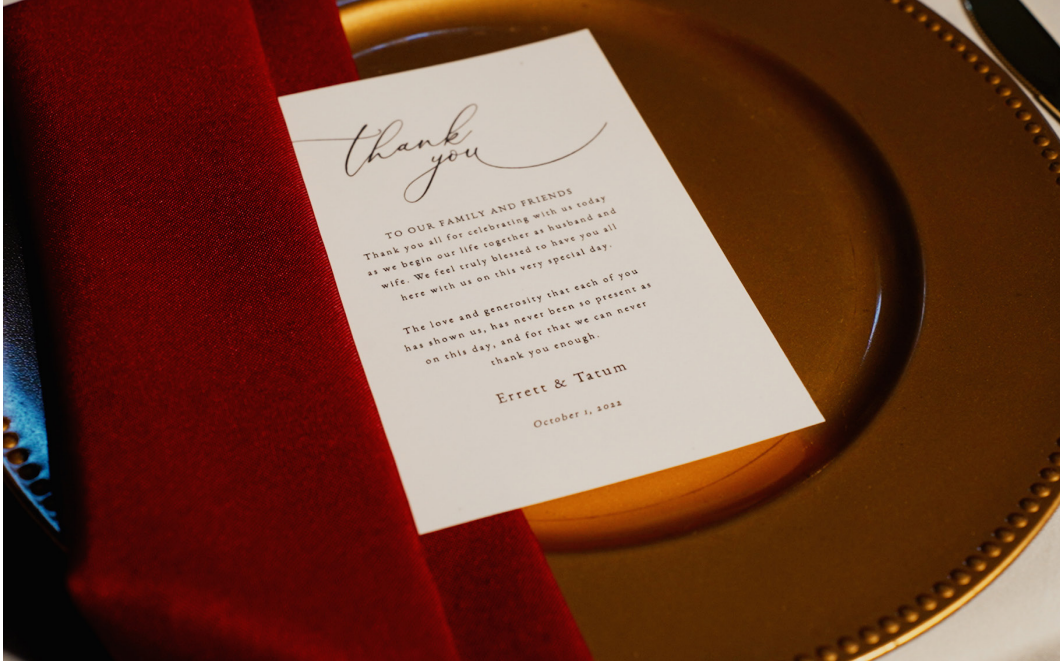 thank
you
TO OUR FAMILY AND FRIENDS
Thank you all for celebrating with us today
as we begin our life together as husband and
wife. We feel truly blessed to have you all
here with us on this very special day.
The love and generosity that each of you
has shown us, has never been so present as
on this day, and for that we can never
thank you enough.
Errett & Tatum
October 1, 2022